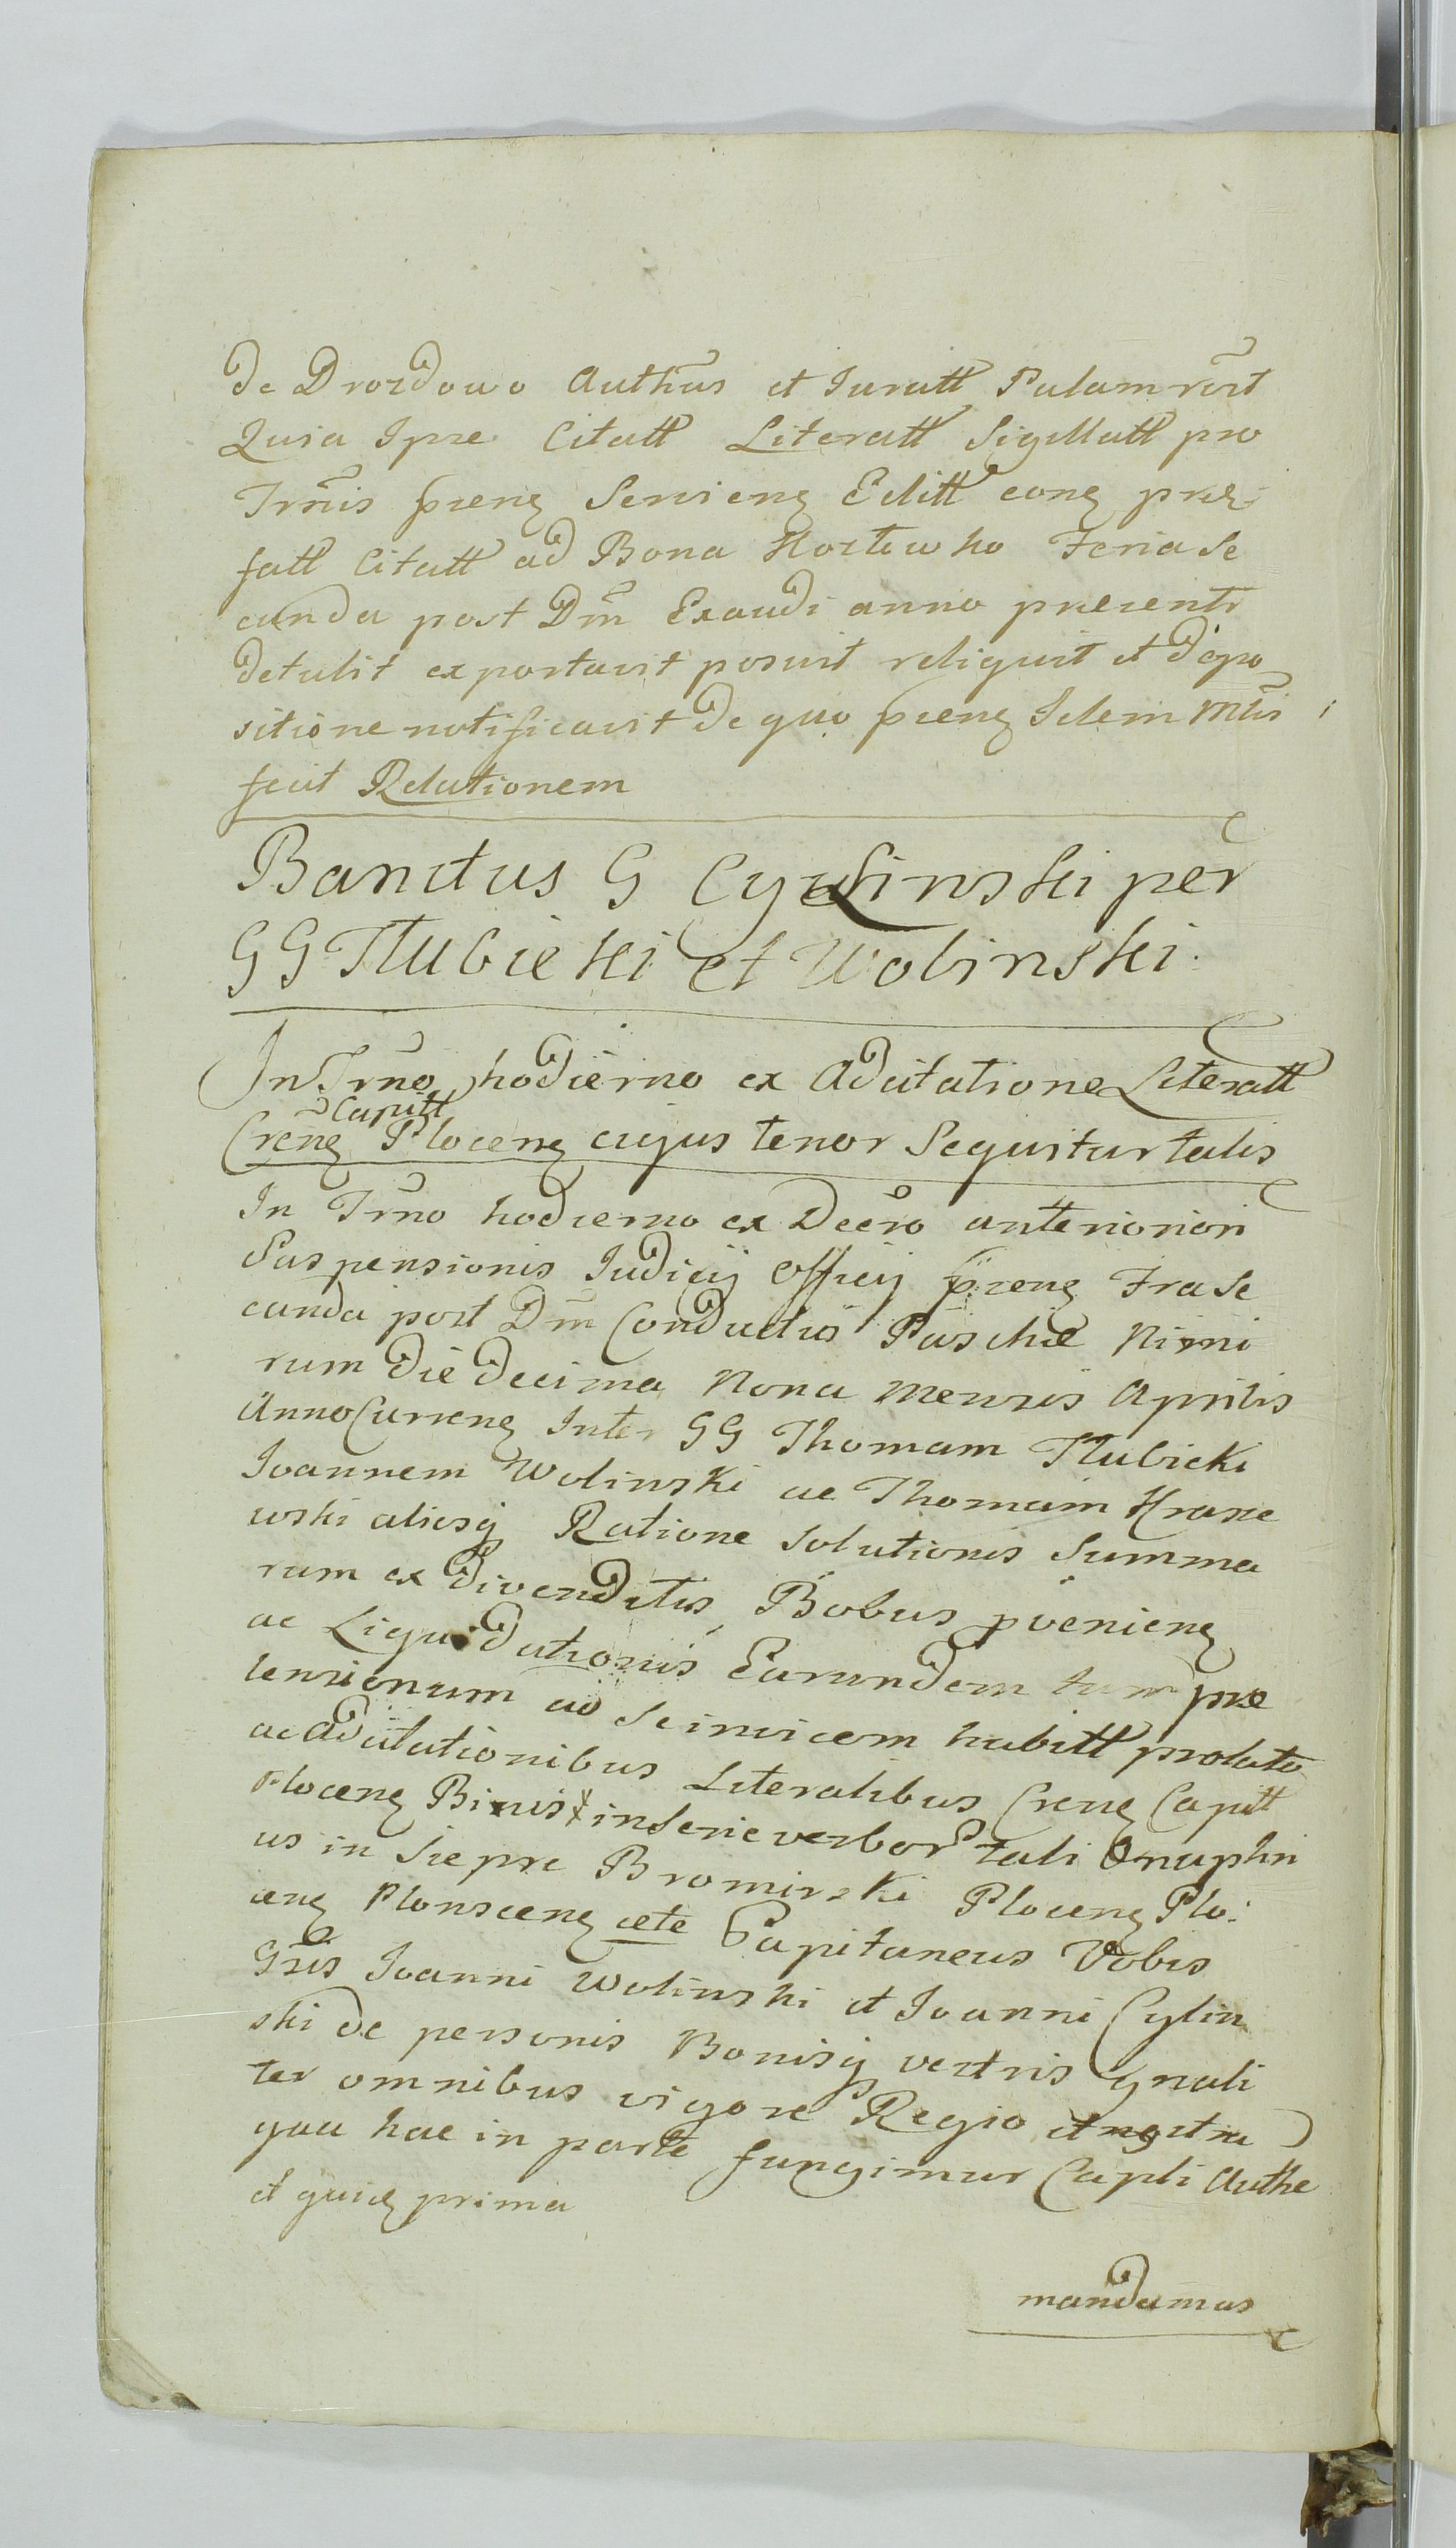 de Drozdowo Authūs et Juratt Palam rēt
Quia Ipse Citatt Literatt Sigillatt pro
Trnīs pzenꝫ Servienꝫ Editt eonꝫ præ
fatt Citatt ad Bona Kortowko Feria Se
cunda post Dm̄ Exaudi anno præsenti
detulit exportavit posuit reliquit et d'epo
sitione notificavit de quo pzenꝫ Idem Mlis
fecit Relationem
Banitus G Cylinski per
GG Tłubicki et Wolinski
In Trn̄o hodierno ex Adcitatione Literatt
Capitt
Crēnꝫ Plocenꝫ cujus tenor Sequitur talis
In Trn̄o hodierno ex Decro anteriori
Suspensionis Judicij Officij pzenꝫ Fra Se
cunda post Dm̄ Conductus Paschæ Nimi
rum die decima Nona Mensis Aprilis
Anno Currenꝫ Inter GG Thomam Tłubicki
Joannem Wolinski ac Thomam Krasze
wski aliosq Ratione Solutionis Summa
rum ex divenditis Bobus pvenienꝫ
ac Liquidationis Earundem tum præ
tensionum ad Seinvicem habitt prolatis
ac adcitationibus Literalibus Crenꝫ Capitt
Plocenꝫ Binis in Serie verbor tali Onuphri
us in Siepre Bromirski Plocenꝫ Plo:
cenꝫ Plonscenꝫ cete Capitaneus Vobis
Grīs Joanni Wolinski et Joanni Cylin
ski de personis Bonisq vestris gnali
ter omnibus vigore Regio et nostra
qua hac in parte fungimur Capli Authe
et quicꝫ prima
mandamus